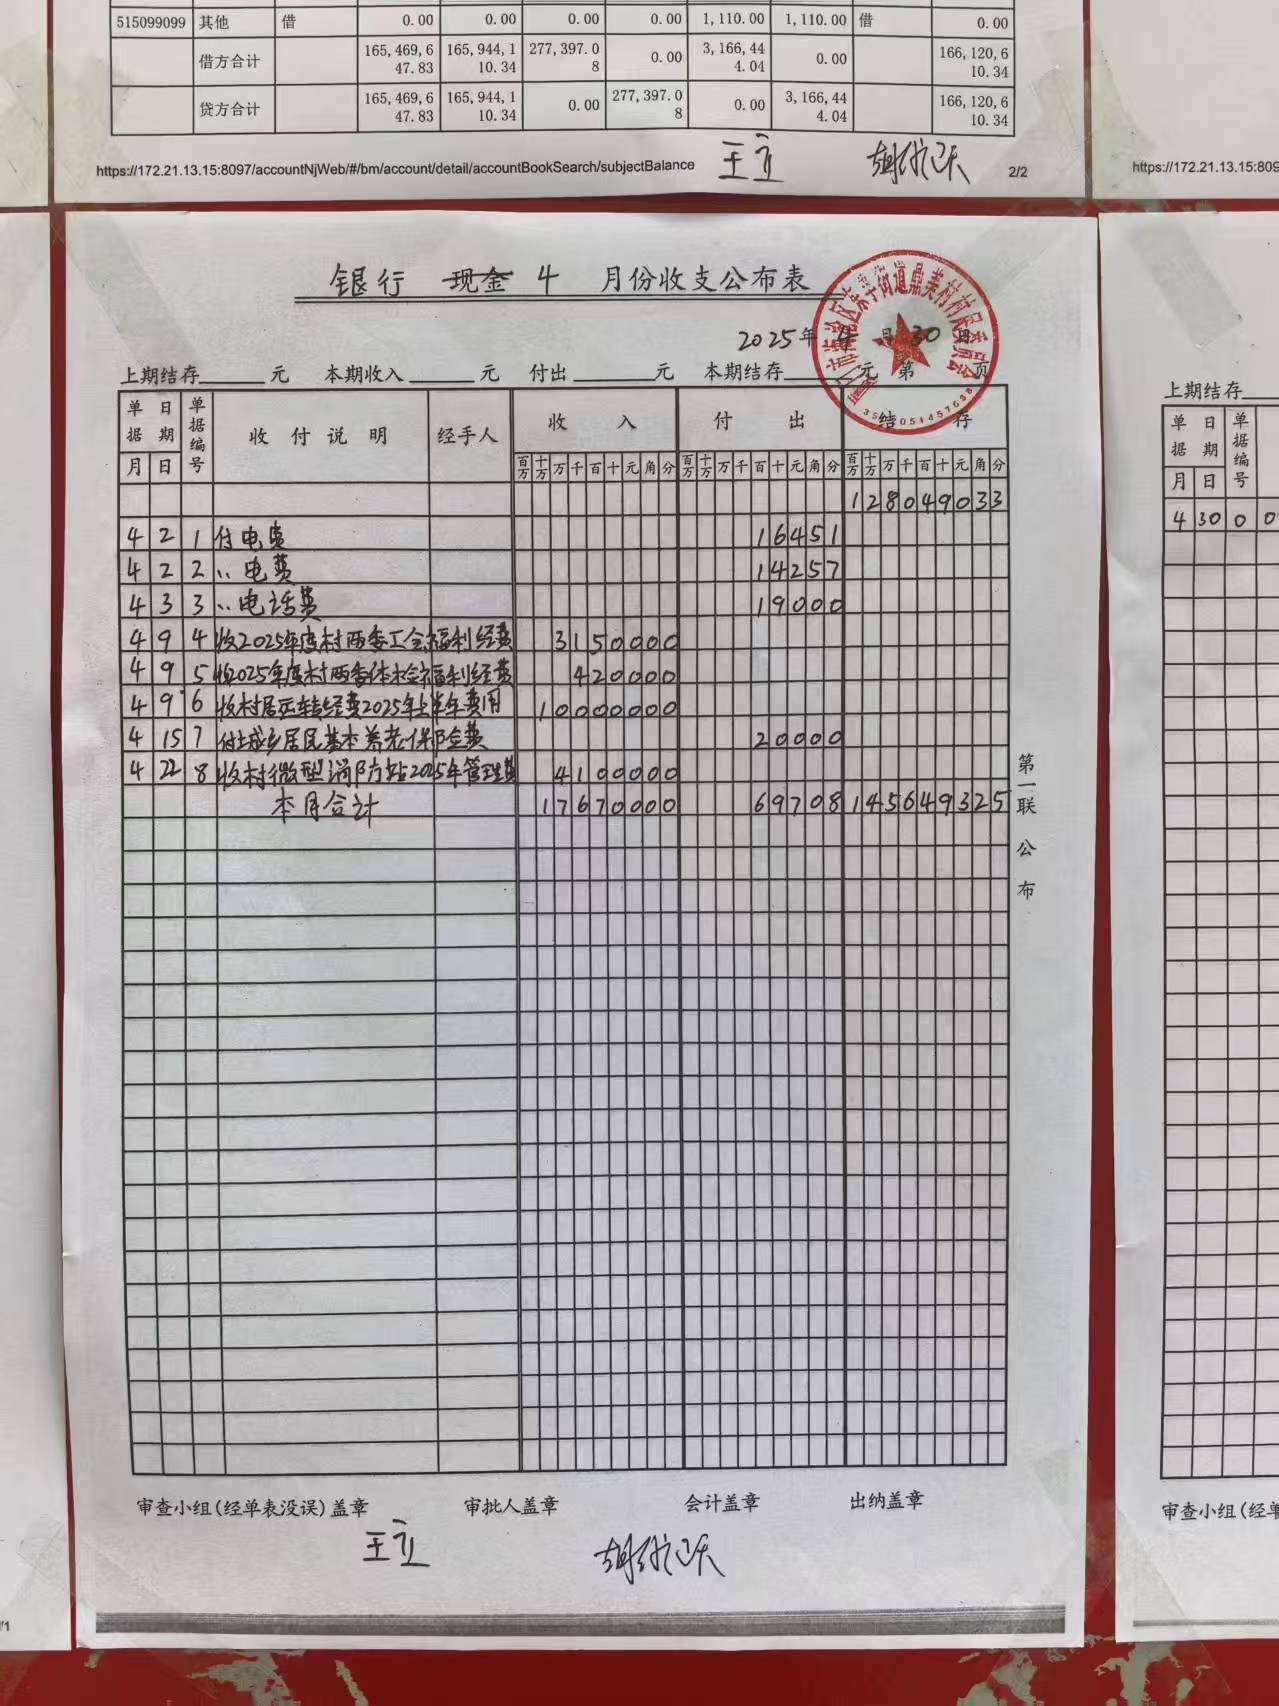 515099099 其他 借 0.00 0.00 0.00 0.00 1,110.00 1,110.00 借 0.00
借方合计 165,469,647.83 165,944,110.34 277,397.08 0.00 3,166,444.04 0.00 166,120,610.34
贷方合计 165,469,647.83 165,944,110.34 0.00 277,397.08 0.00 3,166,444.04 166,120,610.34
https://172.21.13.15:8097/accountNjWeb/#/bm/account/detail/accountBookSearch/subjectBalance 王立 2/2
https://172.21.13.15:809
银行 现金 4 月份收支公布表
街道鼎美村村民委员会
2025年4月30日
上期结存 元 本期收入 元 付出 元 本期结存 元 第 页
单据 日期 单据编号 收付说明 经手人 收入 付出 结存
月 日 百万 十万 万 千 百 十 元 角 分 百万 十万 万 千 百 十 元 角 分 百万 十万 万 千 百 十 元 角 分
128049033
4 2 1 付电费 16451
4 2 2 〃电费 14257
4 3 3 〃电话费 19000
4 9 4 收2025年度村两委工会福利经费 3150000
4 9 5 收2025年度村两委体检福利经费 420000
4 9 6 收村居运转经费2025年上半年费用 10000000
4 15 7 付城乡居民基本养老保险费 20000
4 22 8 收村微型消防站2025年管理费 4100000
本月合计 17670000 69708 145649325
第一联 公布
审查小组(经单表没误)盖章 审批人盖章 会计盖章 出纳盖章
王立
上期结存
单据 日期 单据编号
月 日
4 30 0 0
审查小组(经单
/1